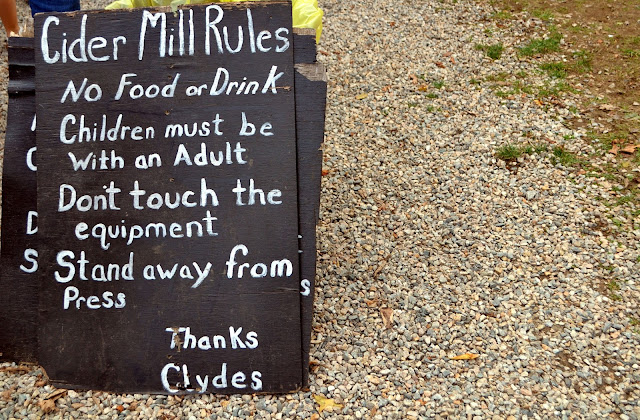 Cider Mill Rules
No Food or Drink
Children must be
with an Adult
Don't touch the
equipment
Stand away from
Press
Thanks
Clydes